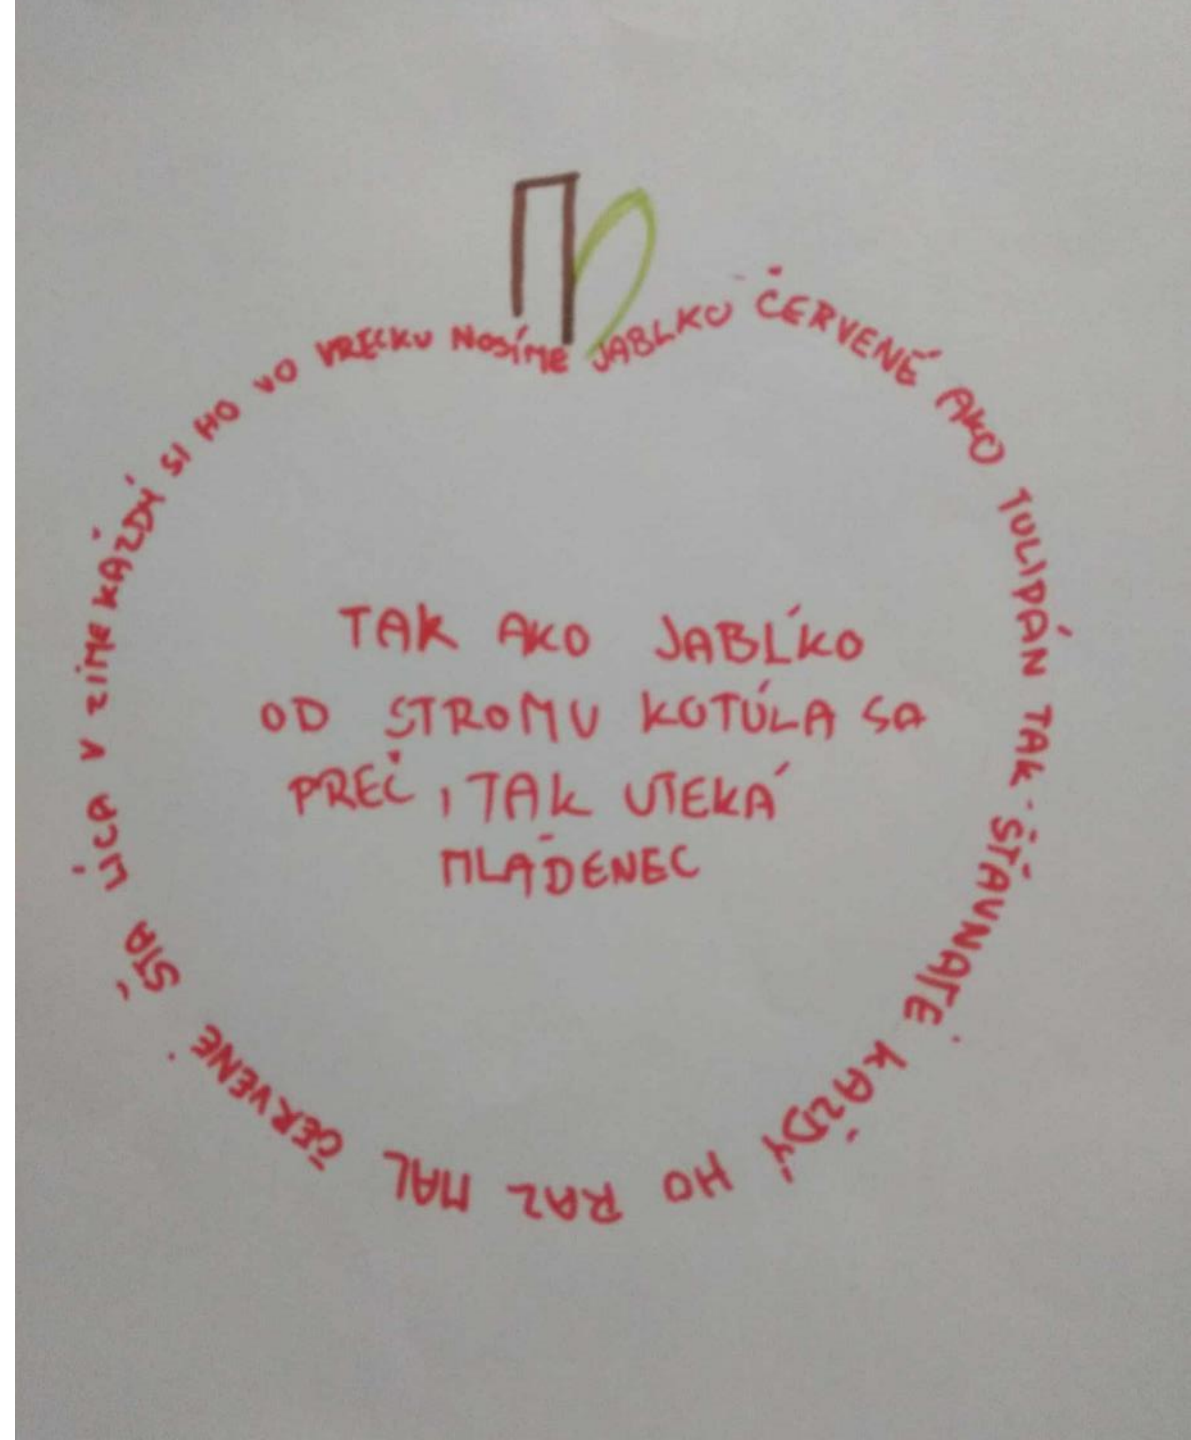 JABLKO ČERVENÉ AKO TULIPÁN TAK ŠŤAVNATÉ KAŽDÝ HO RAZ MAL ČERVENÉ STÁ LÍCA V ZIME KAŽDÝ SI HO VO VRECKU NOSÍME
TAK AKO JABĹKO
OD STROMU KOTÚLA SA
PREČ, TAK UTEKÁ
MLÁDENEC